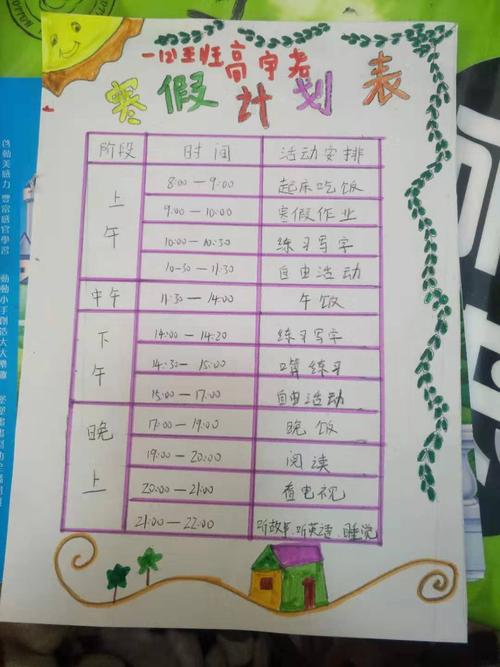 一(2)班任高宇者
寒假计划表
阶段 时间 活动安排
上午 8:00—9:00 起床吃饭
9:00—10:00 寒假作业
10:00—10:30 练习写字
10:30—11:30 自由活动
中午 11:30—14:00 午饭
下午 14:00—14:20 练习写字
14:30—15:00 口算练习
15:00—17:00 自由活动
晚上 17:00—19:00 晚饭
19:00—20:00 阅读
20:00—21:00 看电视
21:00—22:00 听故事.听英语.睡觉
启動美感力 豐富感官學習